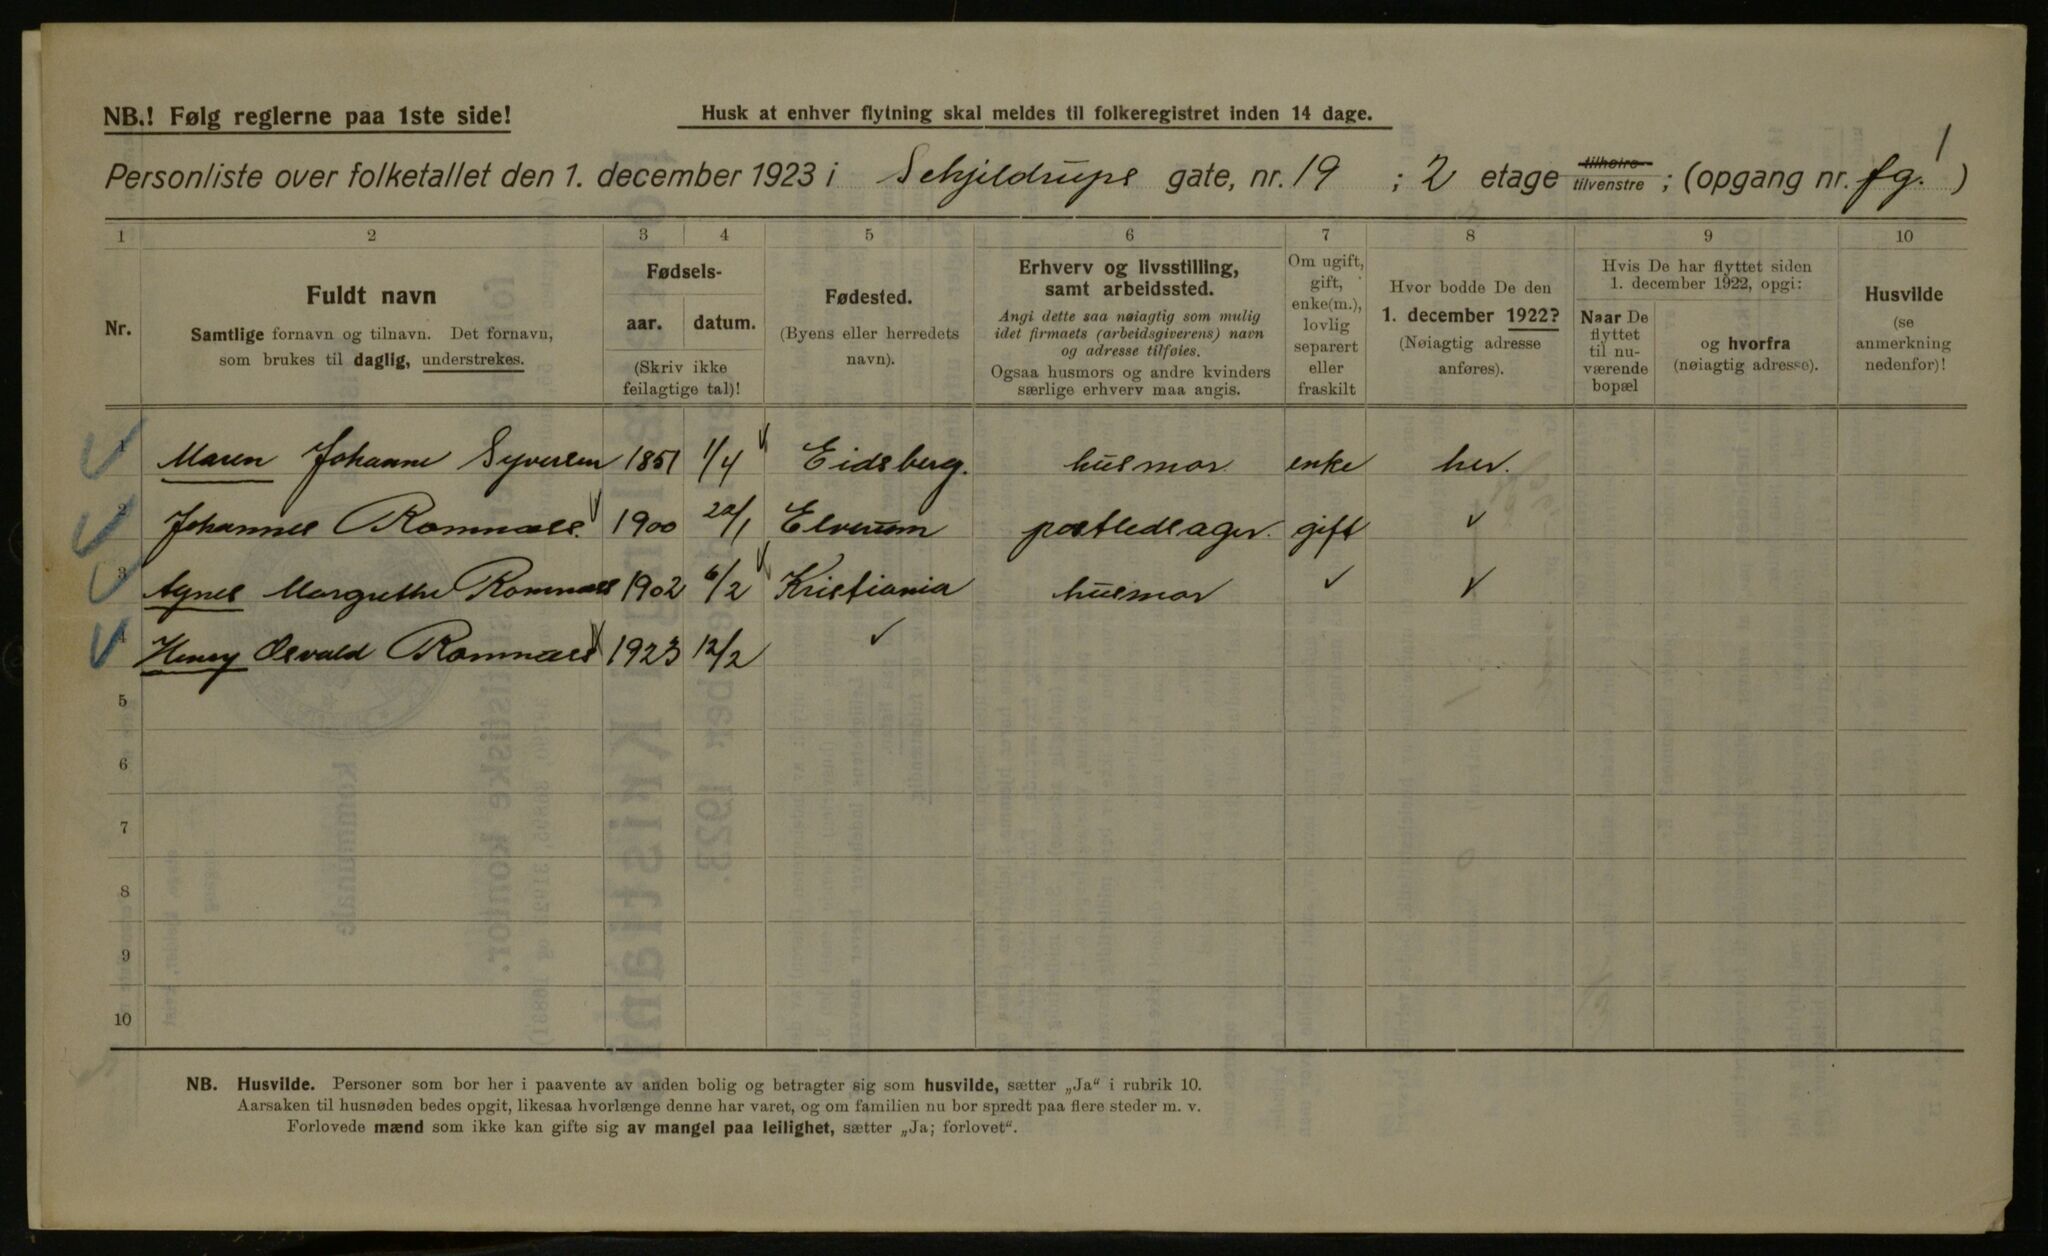 NB.! Følg reglerne paa 1ste side!
Husk at enhver flytning skal meldes til folkeregistret inden 14 dage.
Personliste over folketallet den 1. december 1923 i Schjeldrups gate, nr. 19 ; 2 etage tilhøire tilvenstre ; (opgang nr. fg. 1 )
1 2 3 4 5 6 7 8 9 10
Nr.
Fuldt navn
Samtlige fornavn og tilnavn. Det fornavn,
som brukes til daglig, understrekes.
Fødsels-
aar. datum.
(Skriv ikke
feilagtige tal)!
Fødested.
(Byens eller herredets
navn).
Erhverv og livsstilling,
samt arbeidssted.
Angi dette saa nøiagtig som mulig
idet firmaets (arbeidsgiverens) navn
og adresse tilføies.
Ogsaa husmors og andre kvinders
særlige erhverv maa angis.
Om ugift,
gift,
enke(m.),
lovlig
separert
eller
fraskilt
Hvor bodde De den
1. december 1922?
(Nøiagtig adresse
anføres).
Hvis De har flyttet siden
1. december 1922, opgi:
Naar De
flyttet
til nu-
værende
bopæl
og hvorfra
(nøiagtig adresse).
Husvilde
(se
anmerkning
nedenfor)!
1 Maren Johanne Syversen 1851 1/4 Eidsberg. husmor enke her.
2 Johannes Romnæss. 1900 22/1 Elverum postledsager. gift ✓
3 Agnes Margrethe Romnæss 1902 6/2 Kristiania husmor ✓ ✓
4 Henry Osvald Romnæss 1923 12/2 ✓
5
6
7
8
9
10
NB. Husvilde. Personer som bor her i paavente av anden bolig og betragter sig som husvilde, sætter „Ja“ i rubrik 10.
Aarsaken til husnøden bedes opgit, likesaa hvorlænge denne har varet, og om familien nu bor spredt paa flere steder m. v.
Forlovede mænd som ikke kan gifte sig av mangel paa leilighet, sætter „Ja; forlovet“.